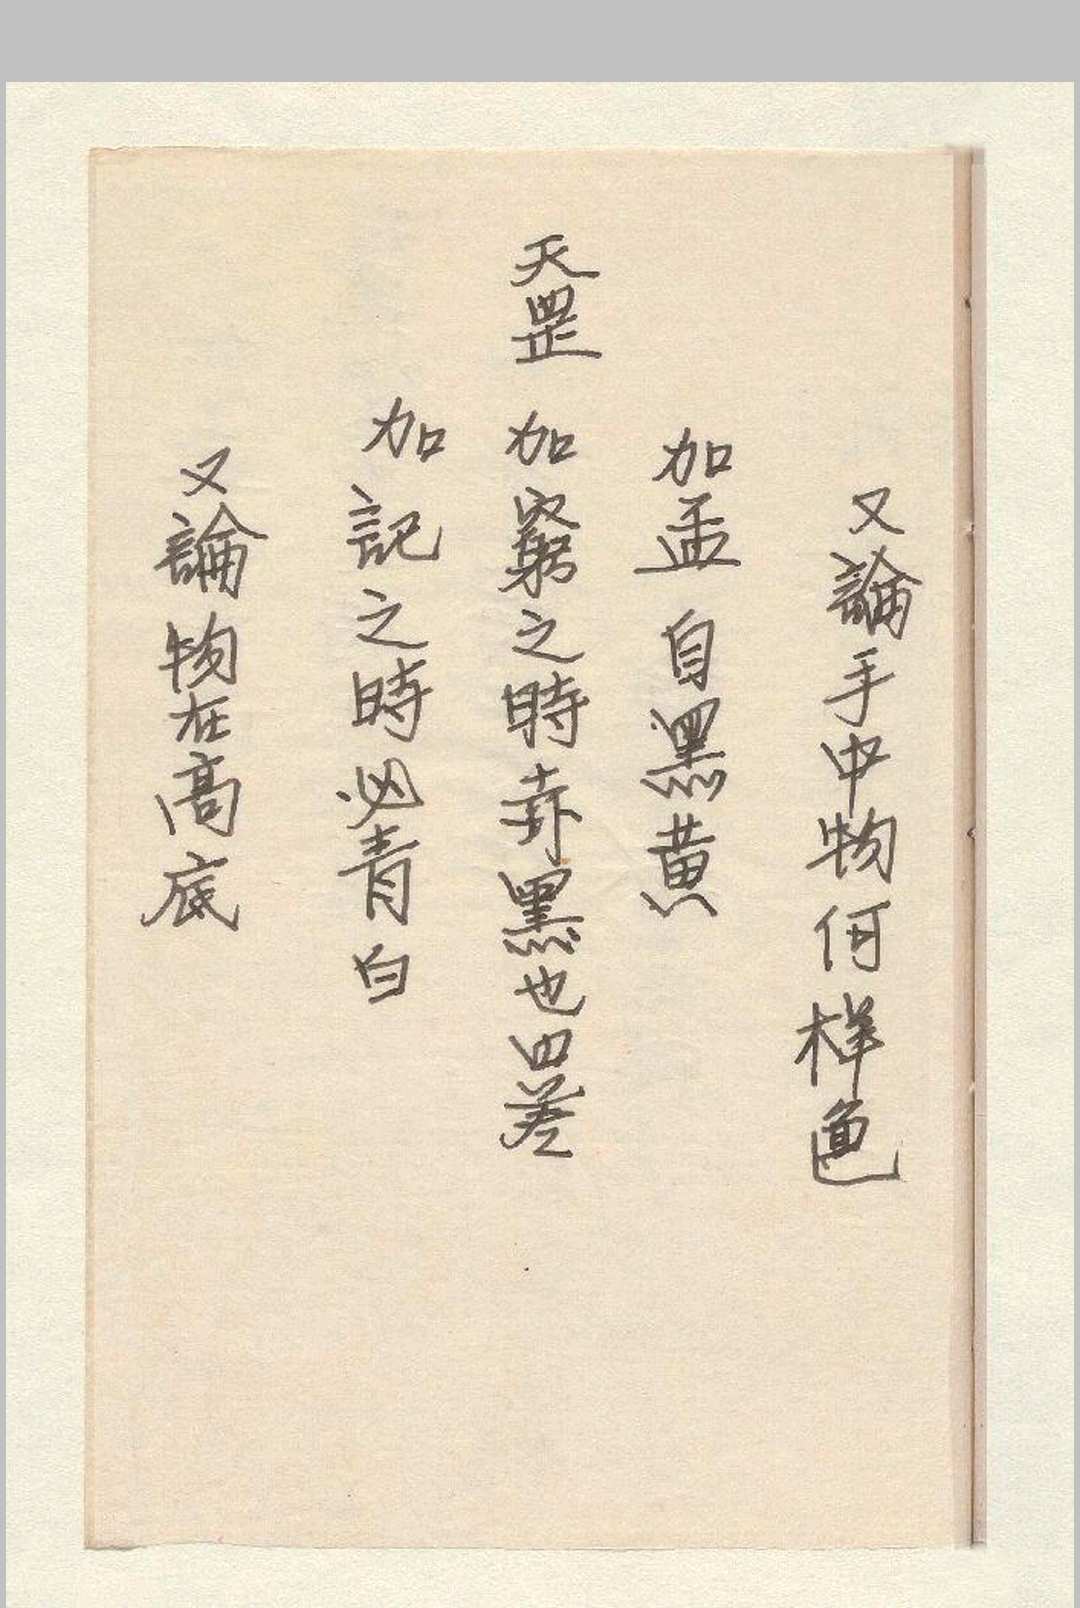 又論手中物何样色
加孟自黑黄
天罡加窮之時赤黑也四差
加記之時必青白
又論物在高底